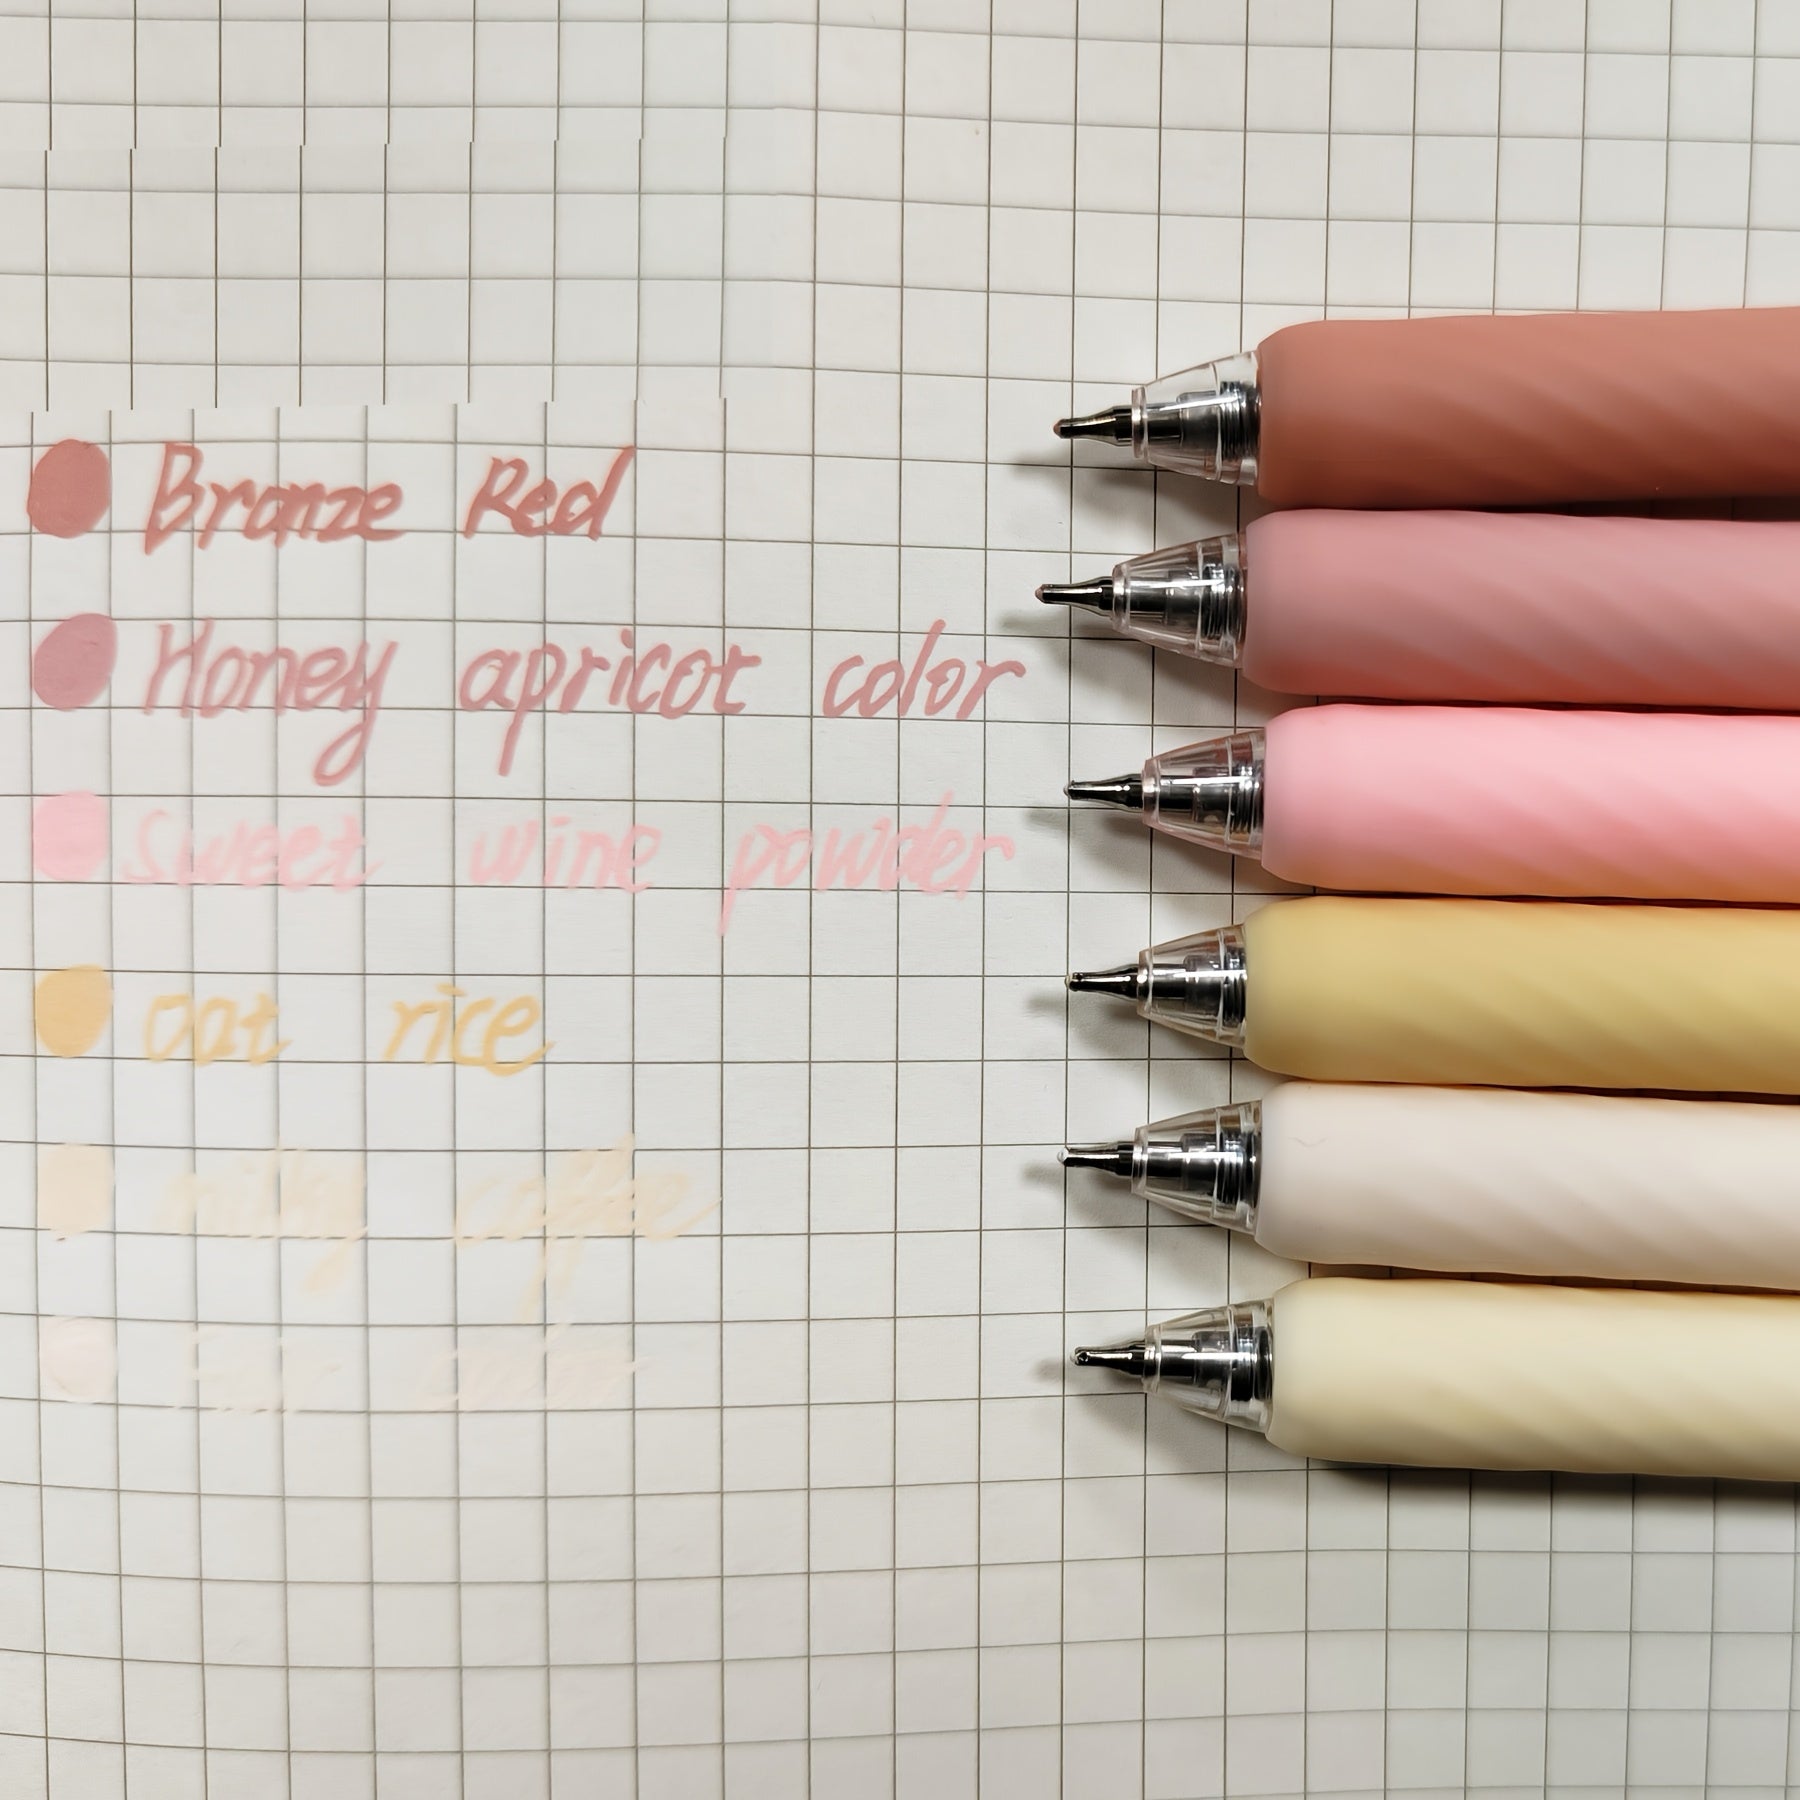 Bronze Red
Honey apricot color
sweet wine powder
oat rice
milky coffee
color